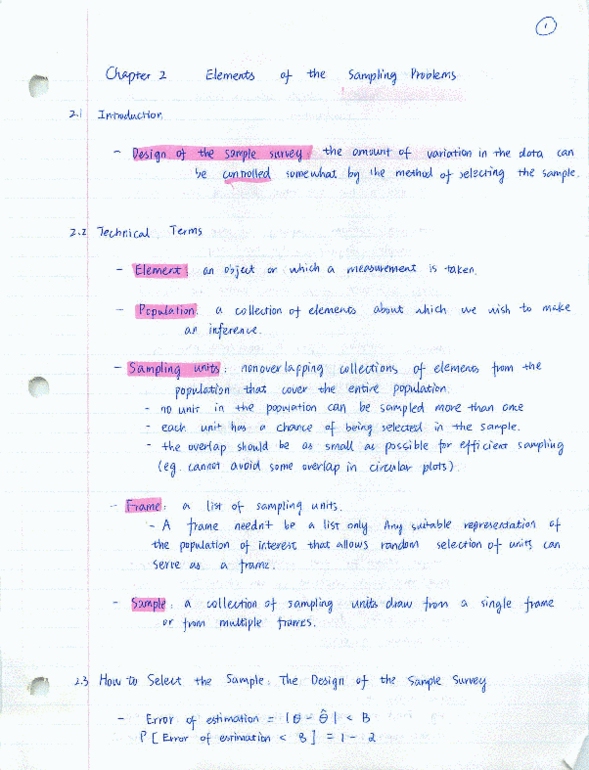 1
Chapter 2 Elements of the Sampling Problems
2.1 Introduction
- Design of the sample survey: the amount of variation in the data can
be controlled somewhat by the method of selecting the sample.
2.2 Technical Terms
- Element: an object or which a measurement is taken.
- Population: a collection of elements about which we wish to make
an inference.
- Sampling units: nonoverlapping collections of elements from the
population that cover the entire population.
- no unit in the population can be sampled more than once
- each unit has a chance of being selected in the sample.
- the overlap should be as small as possible for efficient sampling
(eg. cannot avoid some overlap in circular plots).
- Frame: a list of sampling units.
- A frame needn't be a list only Any suitable representation of
the population of interest that allows random selection of units can
serve as a frame.
- Sample: a collection of sampling units draw from a single frame
or from multiple frames.
2.3 How to Select the Sample: The Design of the Sample Survey
- Error of estimation = |θ - θ̂| < B
P [Error of estimation < B] = 1 - α